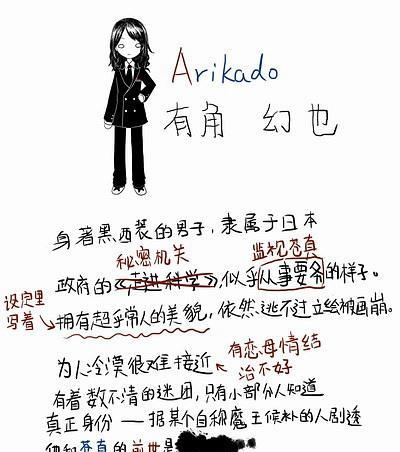 Arikado
有角 幻也
身著黑西装的男子，隶属于日本
秘密机关 监视苍真
政府的《走进科学》，似乎从事要务的样子。
设定里
写着
拥有超乎常人的美貌，依然逃不过立绘被画崩。
为人冷漠很难接近
有恋母情结
治不好
有着数不清的迷团，只有小部分人知道
真正身份——据某个自称魔王候补的人剧透
他和苍真的前世是